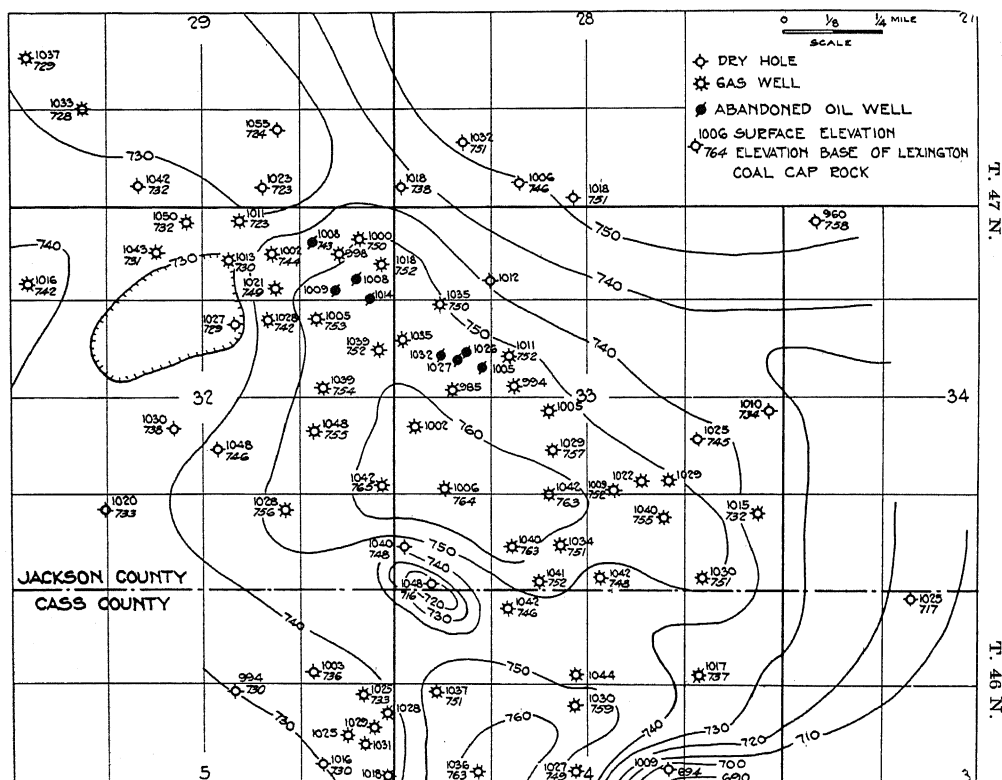 29
28
21
0 1/8 1/4 MILE
SCALE
DRY HOLE
GAS WELL
ABANDONED OIL WELL
1006 SURFACE ELEVATION
764 ELEVATION BASE OF LEXINGTON
COAL CAP ROCK
T. 47 N.
1037
729
1033
728
1055
724
1032
751
730
1042
732
1023
723
1018
738
1006
746
1018
751
1050
732
1011
723
1008
743
1000
750
960
758
750
740
1043
731
730
1013
730
1002
744
998
1018
752
1016
742
1021
749
1009
1008
1014
1012
740
1035
750
1027
729
1028
742
1005
753
750
740
1039
752
1035
1032
1027
1026
1005
1011
752
1039
754
985
994
32
33
34
1005
1010
734
1030
738
1048
755
1002
760
1025
745
1048
746
1029
757
1042
765
1006
764
1042
763
1003
752
1022
1029
1020
733
1028
756
1040
755
1015
732
1040
748
750
740
1040
763
1034
751
JACKSON COUNTY
CASS COUNTY
1048
716
720
730
1041
752
1042
748
1030
751
1025
717
1042
746
740
T. 46 N.
1003
736
750
1044
1017
737
994
730
1025
733
1037
751
730
1028
1030
759
740
730
720
710
1025
1029
1031
760
1016
730
1018
1036
763
1027
749
1009
694
700
690
5
4
3